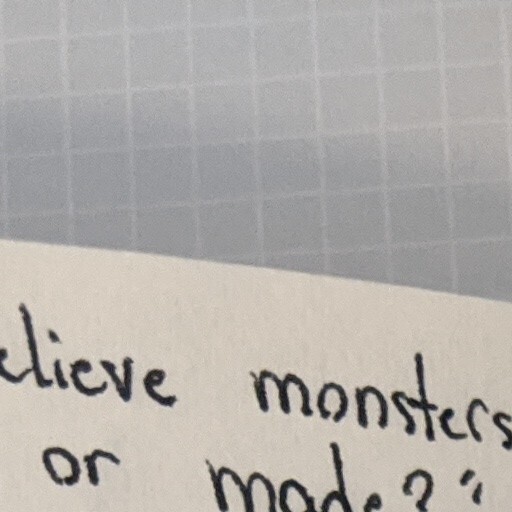 elieve monsters
or made?"